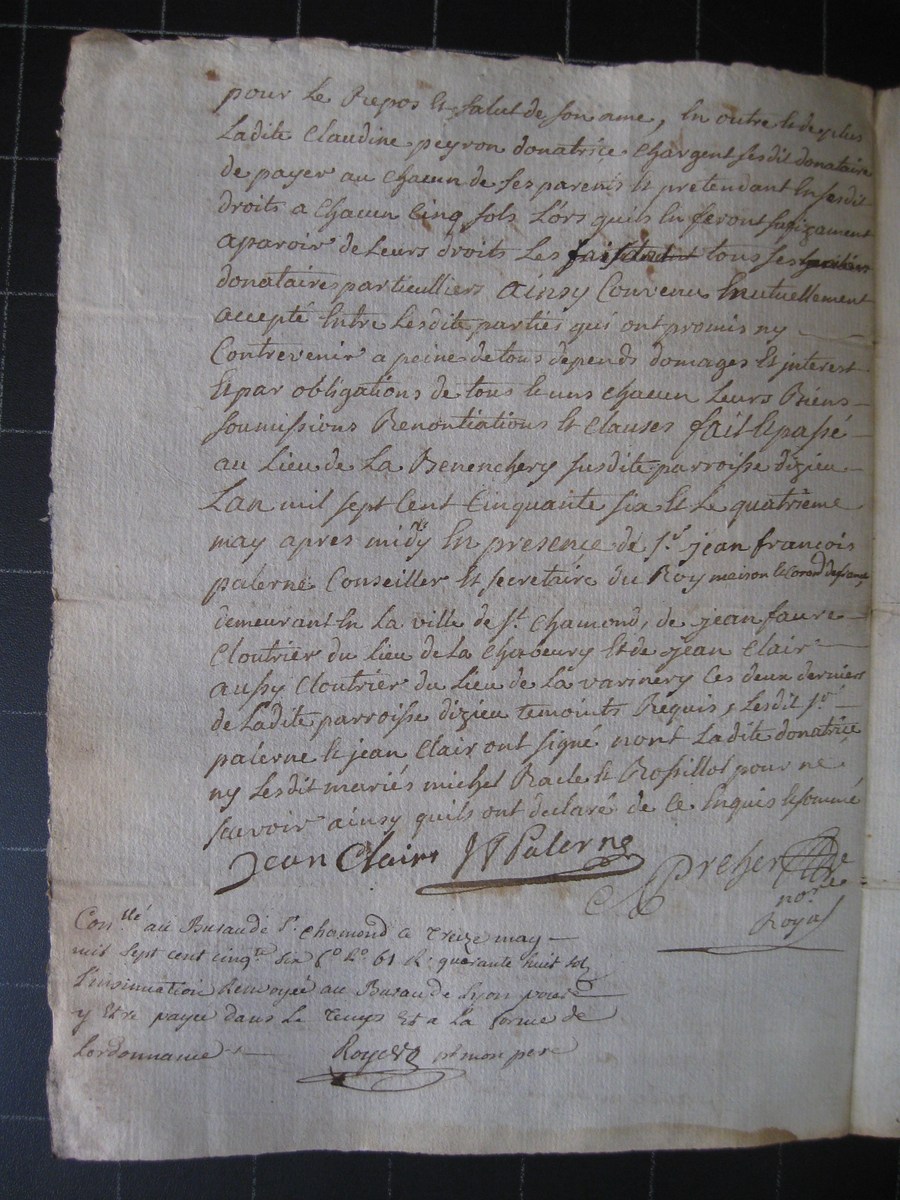 pour le Repos et salut de son ame, En outre et de plus
Ladite Claudine peyron donatrice chargent sesdit donataire
de payer au chacun de ses parents et pretendant En sesdit
droits a chacun Cinq sols Lors quils En feront sufizament
aparoir de Leurs droits Les faisant tous ses
donataires particulliers ainsy Convenu mutuellement
accepté Entre Lesdite parties qui ont promis ny
Contrevenir a peine de tous depends domages et interest
Et par obligations de tous et uns chacun Leurs Biens
soumissions Renontiations et clauses fait et passé
au Lieu de La Benenchery susdite parroisse dizieu
Lan mil sept Cent Cinquante six et Le quatrieme
may apres midy En presence de Sr. jean françois
palerne Conseiller et secretaire du Roy maison et Corone de france
demeurant En La ville de St. chamond, de jean faure
Cloutrier du Lieu de La et de jean Clair
aussy Cloutrier du Lieu de La varinery Ces deux derniers
de Ladite parroisse dizieu temoints Requis, Lesdit Sr.
palerne et jean Clair ont signé nont Ladite donatrice
ny Lesdit mariés michel Racle et Rossillol pour ne
savoir ainsy quils ont declaré de Ce Enquis et sommé
Jean Clair Palerne
nore
Royal
Conllé au Bureau de St. chamond ce treize may
mil sept cent cinqte six fo Ro 61 R. quarante huit sols
L'insinuation Renvoyée au Bureau de Lyon pour
y Etre payée dans Le temps et a La forme de
Lordonnance
Royer pr mon pere